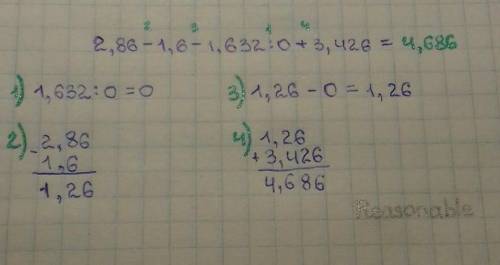 2 3 1 4
2,86-1,6-1,632:0+3,426=4,686
1) 1,632:0=0
2) 2,86
- 1,6
1,26
3) 1,26-0=1,26
4) 1,26
+ 3,426
4,686
Reasonable